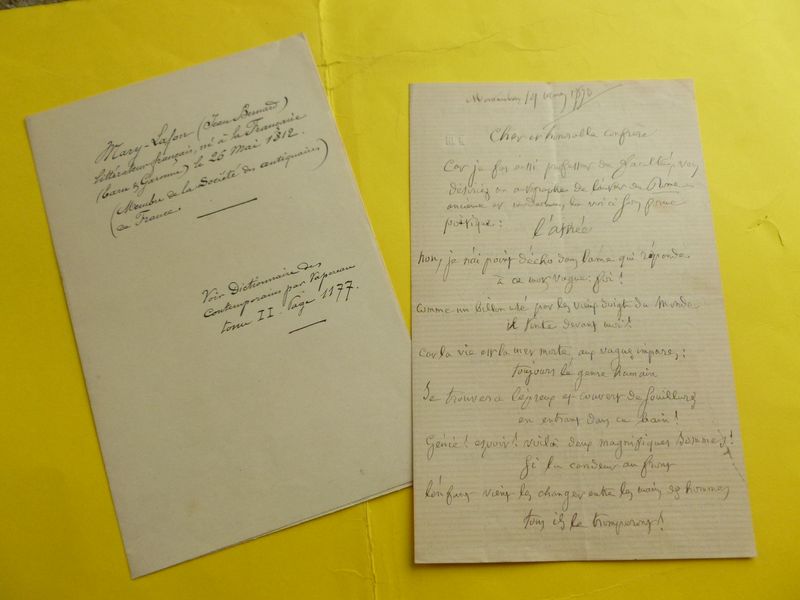 Mary-Lafon (Jean Bernard)
littérateur français, né à la Française
(Tarn & Garonne) le 26 Mai 1812.
(Membre de la Société des antiquaires
de France.)
Voir Dictionnaire des
Contemporains par Vapereau
tome II. Page 1177.
Cher et honorable confrère
Car je fus aussi professeur de faculté, vous
désirez un autographe de l'auteur de Rome
ancienne et moderne, le voici sous forme
poétique :
l'athée
Non, je n'ai point d'écho dans l'âme qui réponde
à ce mot vague : foi !
Comme un billon usé par les vieux doigts du monde
il tinte devant moi !
Car la vie est la mer morte, aux vagues impures ;
toujours le genre humain
Se trouvera lépreux et couvert de souillures
en entrant dans ce bain !
Génie ! espoir ! voilà deux magnifiques sommes !
Si la candeur au front
l'enfant vient les changer entre les mains des hommes
tous ils le tromperont !